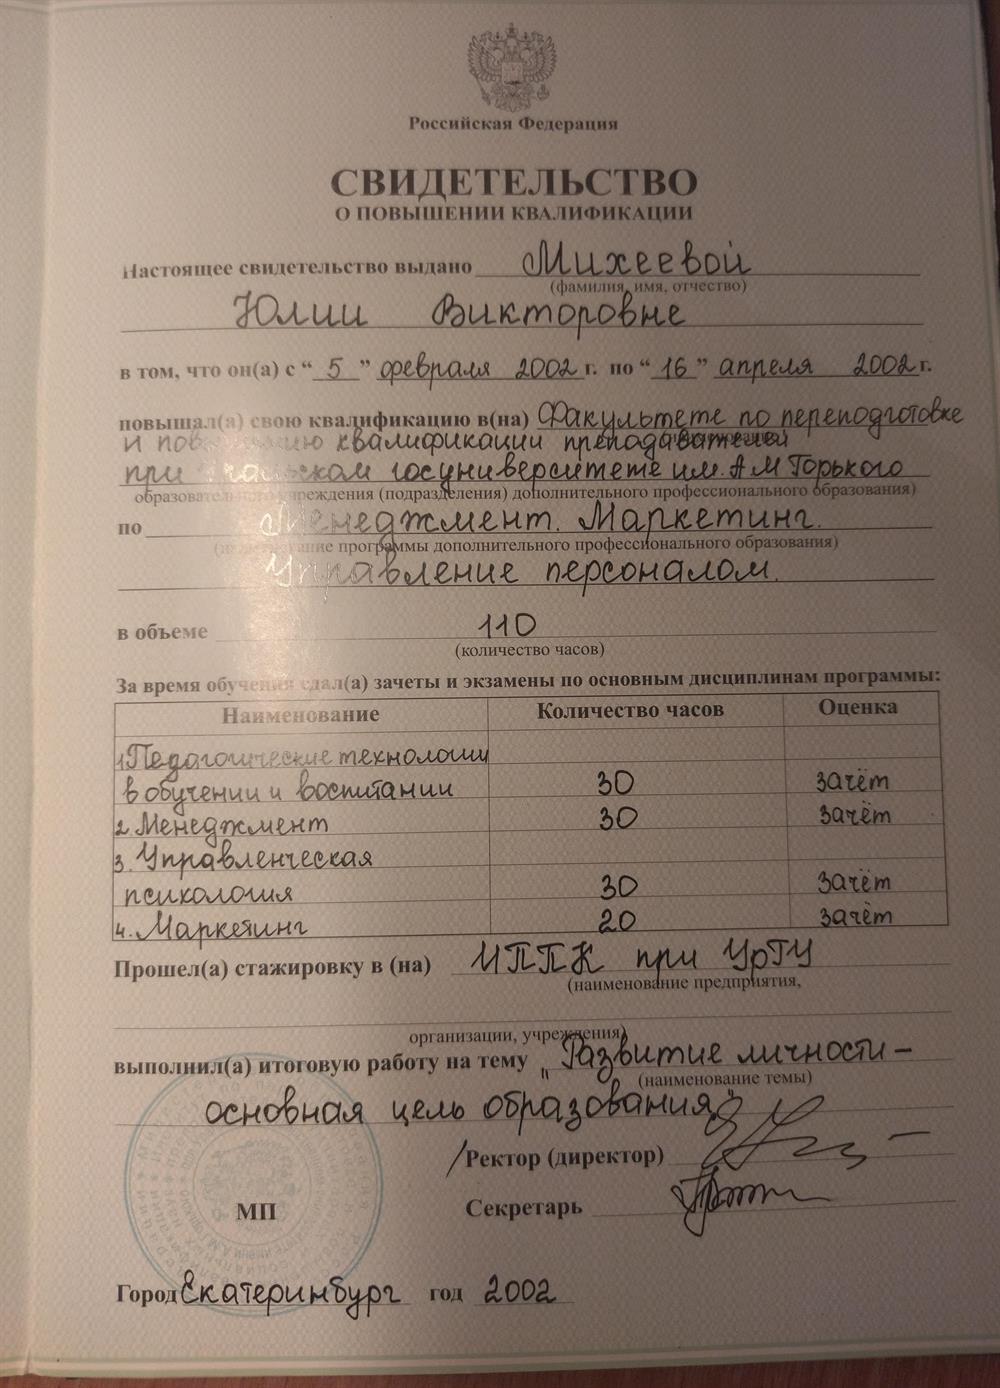 Российская Федерация
СВИДЕТЕЛЬСТВО
О ПОВЫШЕНИИ КВАЛИФИКАЦИИ
Настоящее свидетельство выдано Михеевой
(фамилия, имя, отчество)
Юлии Викторовне
в том, что он(а) с “ 5 ” февраля 2002 г. по “ 16 ” апреля 2002 г.
повышал(а) свою квалификацию в(на) Факультете по переподготовке
и повышению квалификации преподавателей
при Уральском госуниверситете им. А М Горького
образовательного учреждения (подразделения) дополнительного профессионального образования)
по Менеджмент. Маркетинг.
(наименование программы дополнительного профессионального образования)
Управление персоналом.
в объеме 110
(количество часов)
За время обучения сдал(а) зачеты и экзамены по основным дисциплинам программы:
Наименование Количество часов Оценка
1. Педагогические технологии
в обучении и воспитании 30 зачёт
2. Менеджмент 30 зачёт
3. Управленческая
психология 30 зачёт
4. Маркетинг 20 зачёт
Прошел(а) стажировку в (на) ИППК при УрГУ
(наименование предприятия,
организации, учреждения)
выполнил(а) итоговую работу на тему „Развитие личности –
(наименование темы)
основная цель образования”
Ректор (директор)
Секретарь
МП
Город Екатеринбург год 2002